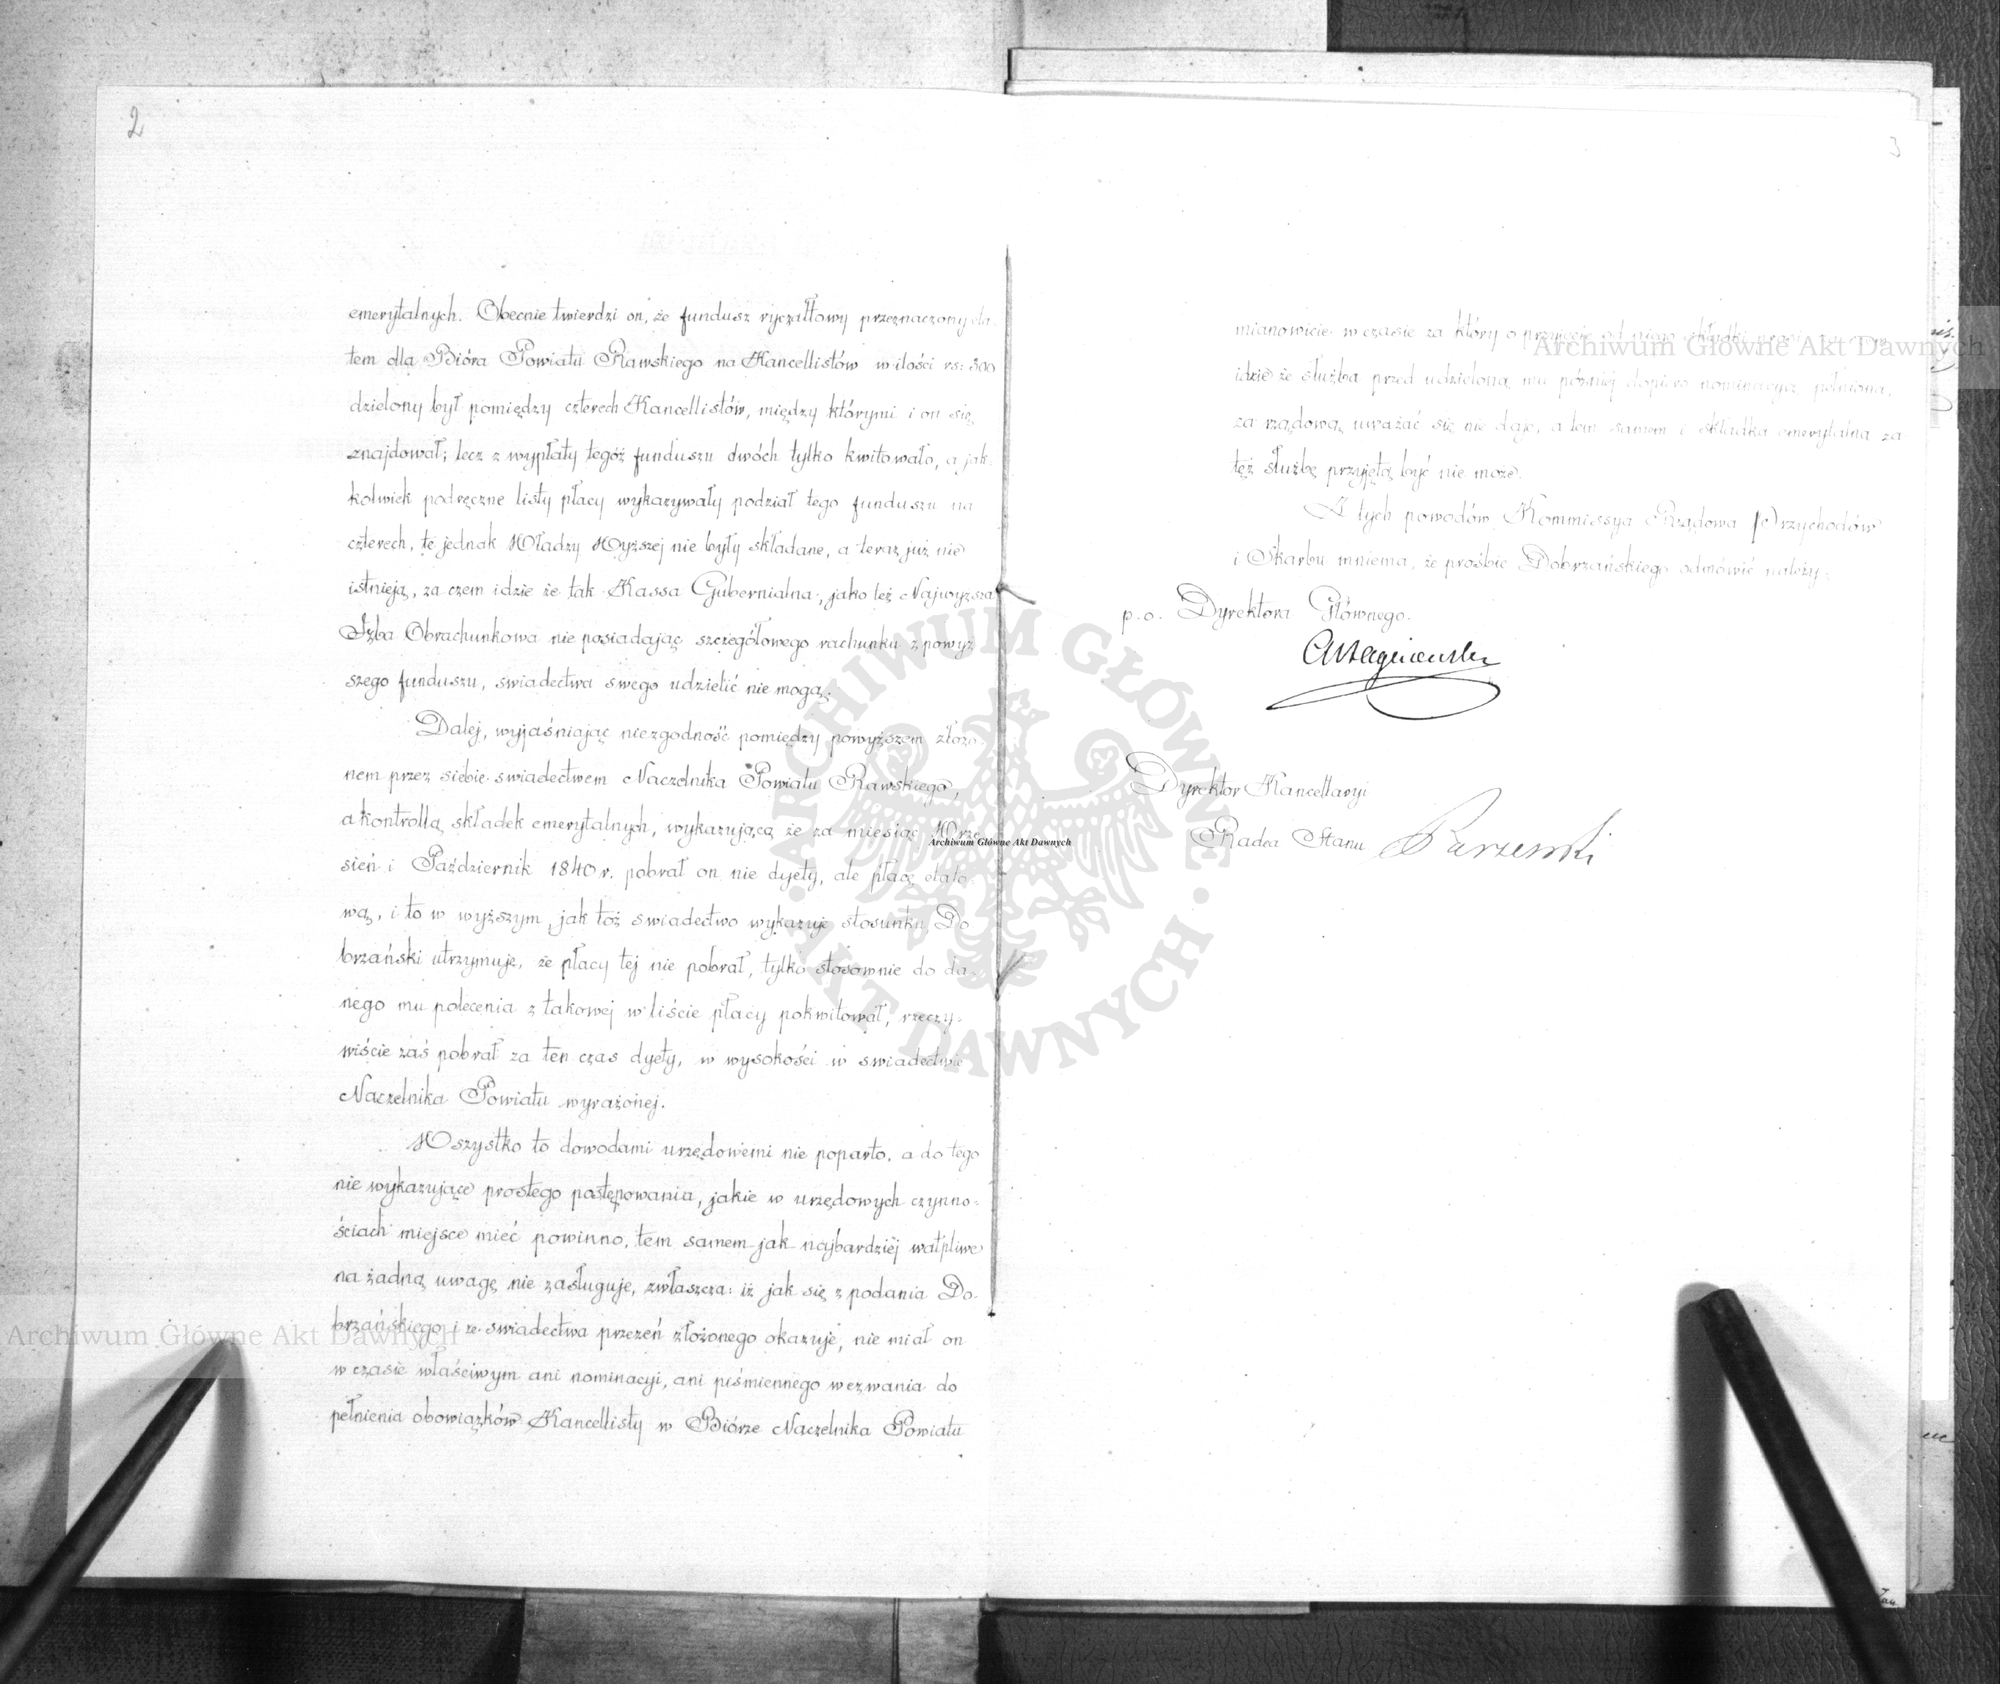 2
emerytalnych. Obecnie twierdzi on, że fundusz ryczałtowy przeznaczony eta-
tem dla Bióra Powiatu Rawskiego na Kancellistów w ilości rs: 300
dzielony był pomiędzy czterech Kancellistów, między którymi i on się
znajdował; lecz z wypłaty tegóż funduszu dwóch tylko kwitowało, a jak-
kolwiek podręczne listy płacy wykazywały podział tego funduszu na
czterech, te jednak Władzy Wyższej nie były składane, a teraz już nie
istnieją, za czem idzie że tak Kassa Gubernialna, jako też Najwyższa
Izba Obrachunkowa nie posiadając szczegółowego rachunku z powyż-
szego funduszu, świadectwa swego udzielić nie mogą.
Dalej, wyjaśniając niezgodność pomiędzy powyższem złożo-
nem przez siebie świadectwem Naczelnika Powiatu Rawskiego,
a kontrollą składek emerytalnych, wykazującą że za miesiąc Wrze-
sień i Październik 1840 r. pobrał on nie dyety, ale płacę etato-
wą, i to w wyższym, jak toż świadectwo wykazuje stosunku, Do-
brzański utrzymuje, że płacy tej nie pobrał, tylko stosownie do da-
nego mu polecenia z takowej w liście płacy pokwitował, rzeczy-
wiście zaś pobrał za ten czas dyety, w wysokości w świadectwie
Naczelnika Powiatu wyrażonej.
Wszystko to dowodami urzędowemi nie poparto, a do tego
nie wykazujące prostego postępowania, jakie w urzędowych czynno-
ściach miejsce mieć powinno, tem samem jak najbardziéj wątpliwe
na żadną uwagę nie zasługuje, zwłaszcza: iż jak się z podania Do-
brzańskiego i ze świadectwa przezeń złożonego okazuje, nie miał on
w czasie właściwym ani nominacyi, ani piśmiennego wezwania do
pełnienia obowiązków Kancellisty w Biórze Naczelnika Powiatu
3
mianowicie w czasie za który o przyjęcie od niego składki
idzie że służba przed udzieloną mu później dopiero nominacyą pełniona,
za rządową uważać się nie daje, a tem samem i składka emerytalna za
tęż służbę przyjętą być nie może.
Z tych powodów Kommissya Rządowa Przychodów
i Skarbu mniema, że prośbie Dobrzańskiego odmówić należy.
p.o. Dyrektora Głównego.
Dyrektor Kancellaryi
Radca Stanu
Archiwum Główne Akt Dawnych
Archiwum Główne Akt Dawnych
Archiwum Główne Akt Dawnych
ARCHIWUM GŁÓWNE AKT DAWNYCH